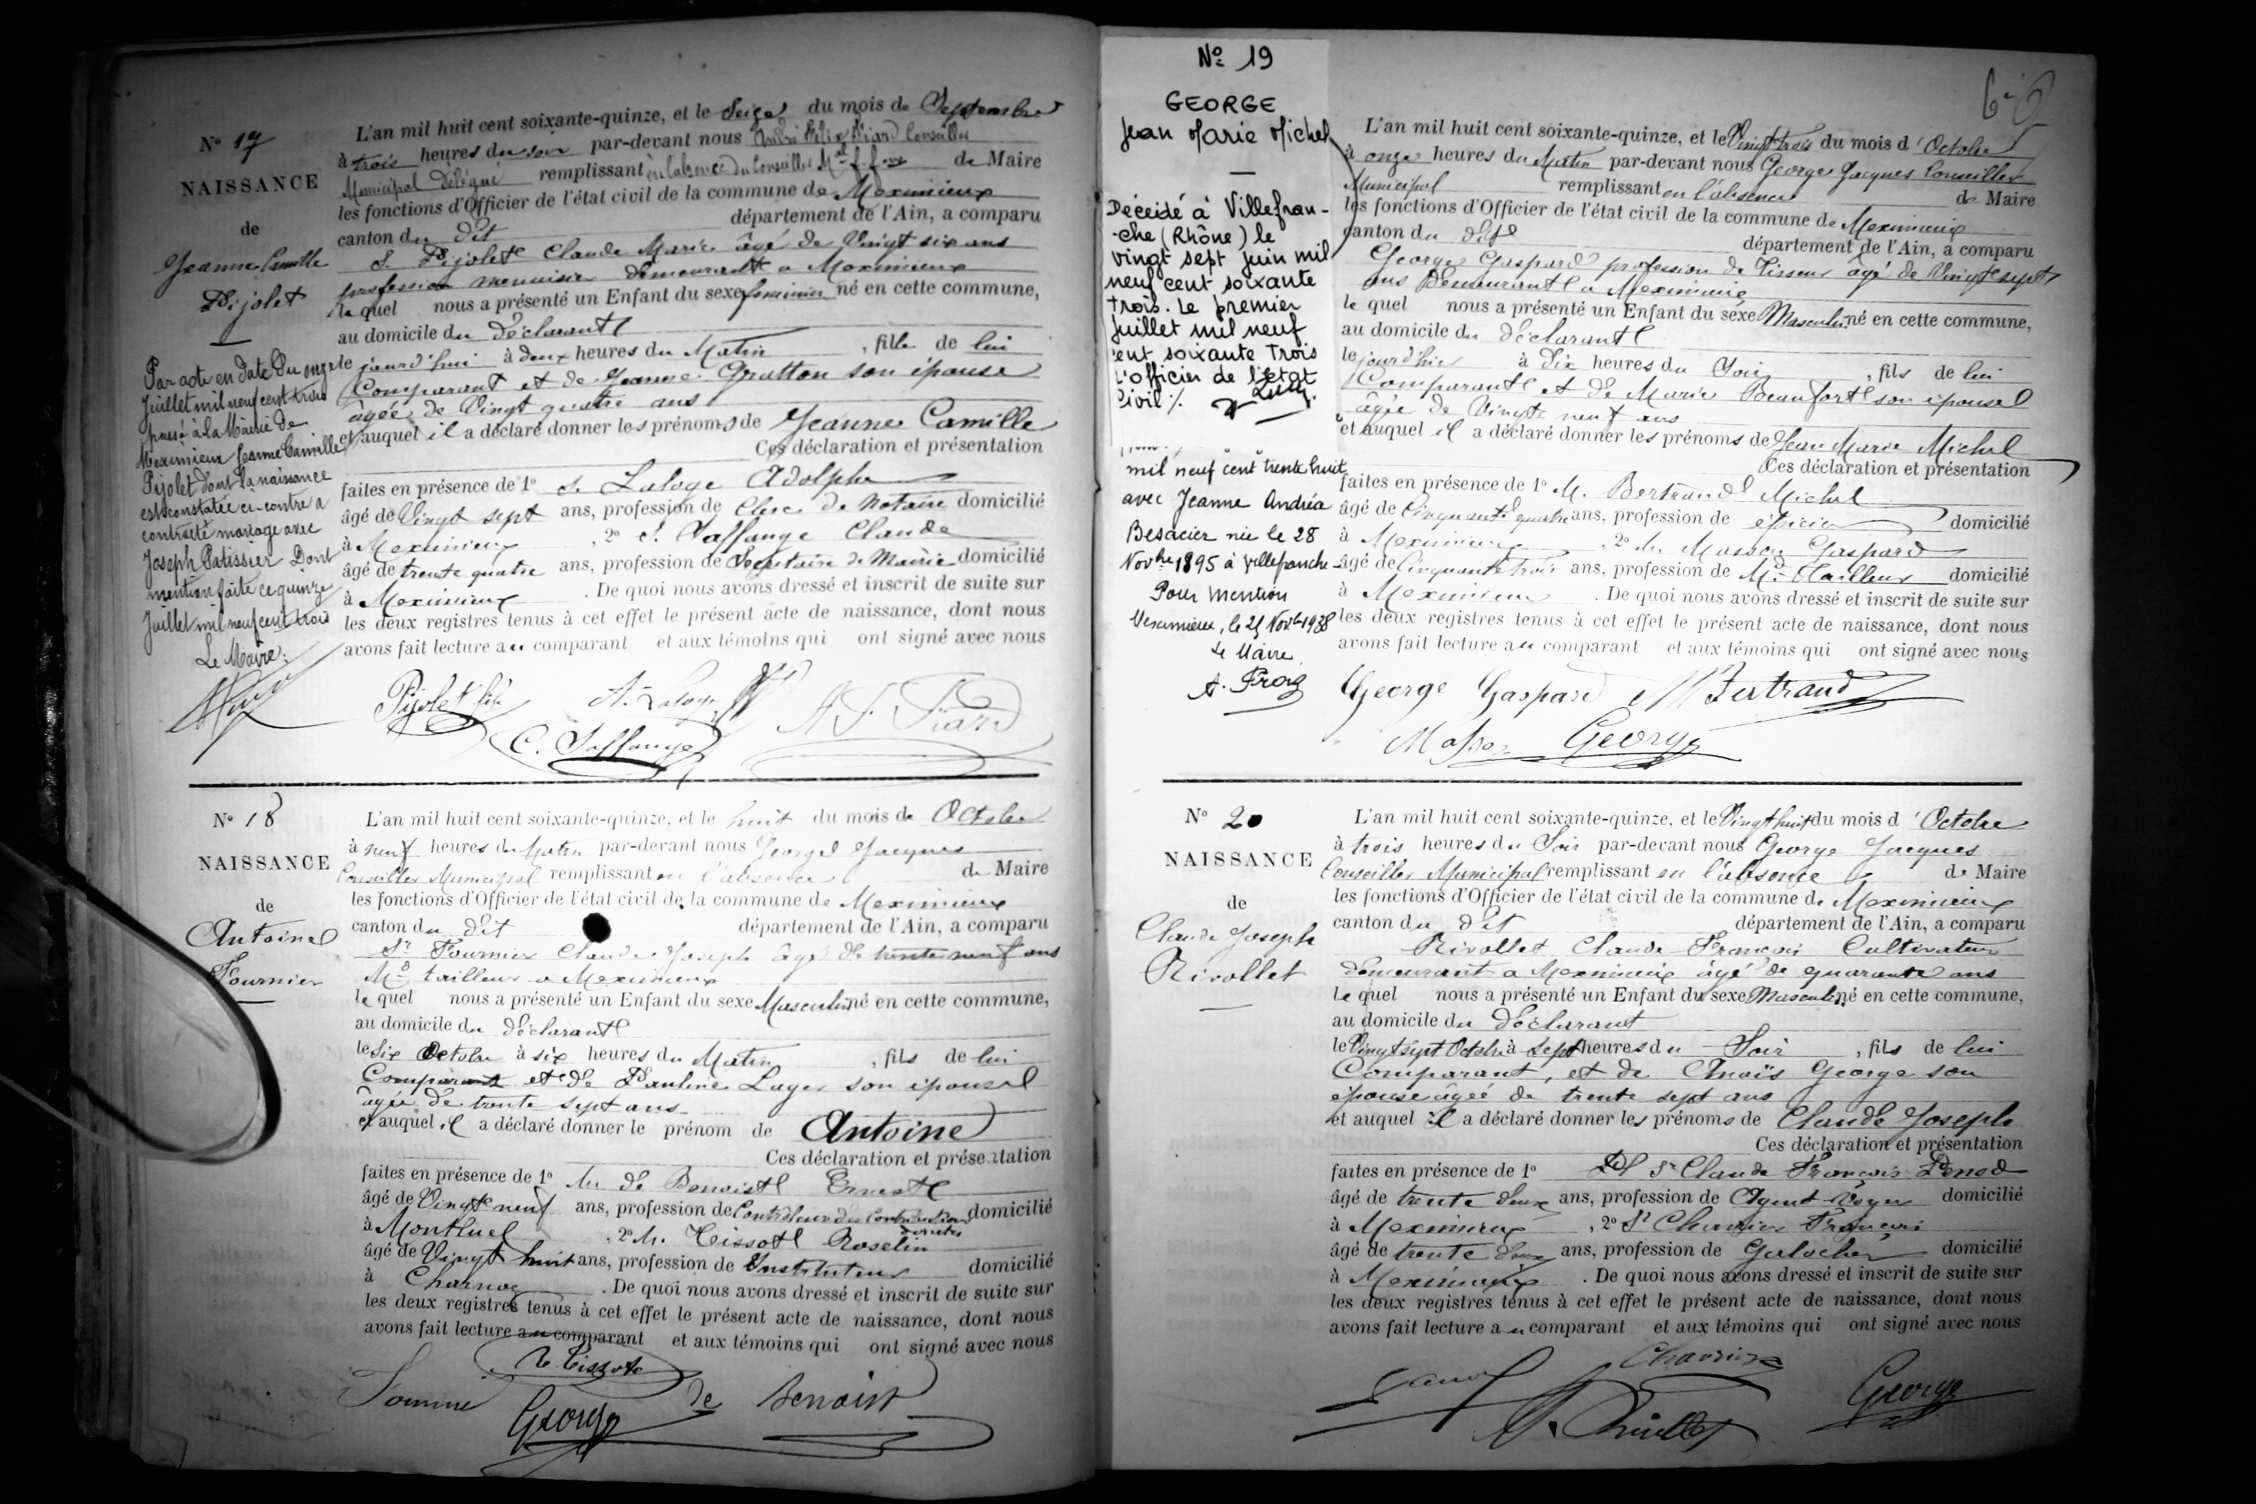 No 17
NAISSANCE
de
Jeanne Camille
Pijolet
Par acte en date du onze
Juillet mil neuf cent trois
passé à la Mairie de
Meximieux Jeanne Camille
Pijolet dont la naissance
est constatée ci-contre a
contracté mariage avec
Joseph Patissier Dont
mention faite ce quinze
Juillet mil neuf cent trois
Le Maire:
L'an mil huit cent soixante-quinze, et le Seize du mois de Septembre
à trois heures du soir par-devant nous André Félix Piard Conseiller
Municipal délégué remplissant en l'absence du Conseiller Mal f. fons de Maire
les fonctions d'Officier de l'état civil de la commune de Meximieux
canton du dit département de l'Ain, a comparu
S. Pijolet Claude Marie âgé de Vingt six ans
profession menuisier demeurant a Meximieux
le quel nous a présenté un Enfant du sexe feminin né en cette commune,
au domicile du déclarant
le jourd'hui à deux heures du Matin, fille de lui
Comparant et de Jeanne Gratton son épouse
âgée de Vingt quatre ans
et auquel il a déclaré donner les prénoms de Jeanne Camille
Ces déclaration et présentation
faites en présence de 1o S. Laloge Adolphe
âgé de Vingt sept ans, profession de Clerc de Notaire domicilié
à Meximieux, 2o S. Jaffange Claude
âgé de trente quatre ans, profession de Secretaire de Mairie domicilié
à Meximieux. De quoi nous avons dressé et inscrit de suite sur
les deux registres tenus à cet effet le présent acte de naissance, dont nous
avons fait lecture au comparant et aux témoins qui ont signé avec nous
Pijolet fils A. Laloge A F Piard
C. Jaffange
No 18
NAISSANCE
de
Antoine
Fournier
L'an mil huit cent soixante-quinze, et le huit du mois de Octobre
à neuf heures du Matin par-devant nous George Jacques
Conseiller Municipal remplissant en l'absence de Maire
les fonctions d'Officier de l'état civil de la commune de Meximieux
canton du dit département de l'Ain, a comparu
Sr Fournier Claude Joseph âgé de trente neuf ans
Md tailleur a Meximieux
le quel nous a présenté un Enfant du sexe Masculin né en cette commune,
au domicile du déclarant
le Six Octobre à six heures du Matin, fils de lui
Comparant et de Pauline Layer son épouse
âgée de trente sept ans
et auquel il a déclaré donner le prénom de Antoine
Ces déclaration et présentation
faites en présence de 1o Mr de Benoist Ernest
âgé de Vingt neuf ans, profession de Contrôleur des Contributions directes domicilié
à Montluel, 2o Mr. Tissot Roselin
âgé de Vingt huit ans, profession de Instituteur domicilié
à Charnoz. De quoi nous avons dressé et inscrit de suite sur
les deux registres tenus à cet effet le présent acte de naissance, dont nous
avons fait lecture au comparant et aux témoins qui ont signé avec nous
R. Tissot
Fournier George de Benoist
No 19
GEORGE
Jean Marie Michel
Décédé à Villefran-
-che (Rhône) le
vingt sept juin mil
neuf cent soixante
trois. Le premier
Juillet mil neuf
cent soixante trois
L'officier de l'état
Civil %.
mil neuf cent trente huit
avec Jeanne Andréa
Besacier née le 28
Novbre 1895 à Villefranche
Pour mention
Meximieux, le 21 Novbre 1938
Le Maire,
L'an mil huit cent soixante-quinze, et le Vingt trois du mois d'Octobre
à onze heures du Matin par-devant nous George Jacques Conseiller
Municipal remplissant en l'absence de Maire
les fonctions d'Officier de l'état civil de la commune de Meximieux
canton du dit département de l'Ain, a comparu
George Gaspard profession de Tisseur âgé de Vingt sept
ans Demeurant a Meximieux
le quel nous a présenté un Enfant du sexe Masculin né en cette commune,
au domicile du déclarant
le jourd'hier à Dix heures du Soir, fils de lui
Comparant et de Marie Beaufort son épouse
âgée de Vingt neuf ans
et auquel il a déclaré donner les prénoms de Jean Marie Michel
Ces déclaration et présentation
faites en présence de 1o M. Bertrand Michel
âgé de Cinquante quatre ans, profession de épicier domicilié
à Meximieux, 2o Mr Masson Gaspard
âgé de Cinquante trois ans, profession de Md Tailleur domicilié
à Meximieux. De quoi nous avons dressé et inscrit de suite sur
les deux registres tenus à cet effet le présent acte de naissance, dont nous
avons fait lecture au comparant et aux témoins qui ont signé avec nous
George Gaspard M Bertrand
Masson George
No 20
NAISSANCE
de
Claude Joseph
Rivollet
L'an mil huit cent soixante-quinze, et le Vingt huit du mois d'Octobre
à trois heures du Soir par-devant nous George Jacques
Conseiller Municipal remplissant en l'absence de Maire
les fonctions d'Officier de l'état civil de la commune de Meximieux
canton du dit département de l'Ain, a comparu
Rivollet Claude François Cultivateur
demeurant a Meximieux âgé de quarante ans
Le quel nous a présenté un Enfant du sexe Masculin né en cette commune,
au domicile du déclarant
le Vingt sept Octobre à sept heures du Soir, fils de lui
Comparant, et de Anaïs George son
épouse âgée de trente sept ans
et auquel il a déclaré donner les prénoms de Claude Joseph
Ces déclaration et présentation
faites en présence de 1o Sr Claude François
âgé de trente deux ans, profession de Agent Voyer domicilié
à Meximieux, 2o Sr Charrier François
âgé de trente deux ans, profession de domicilié
à Meximieux. De quoi nous avons dressé et inscrit de suite sur
les deux registres tenus à cet effet le présent acte de naissance, dont nous
avons fait lecture au comparant et aux témoins qui ont signé avec nous
George